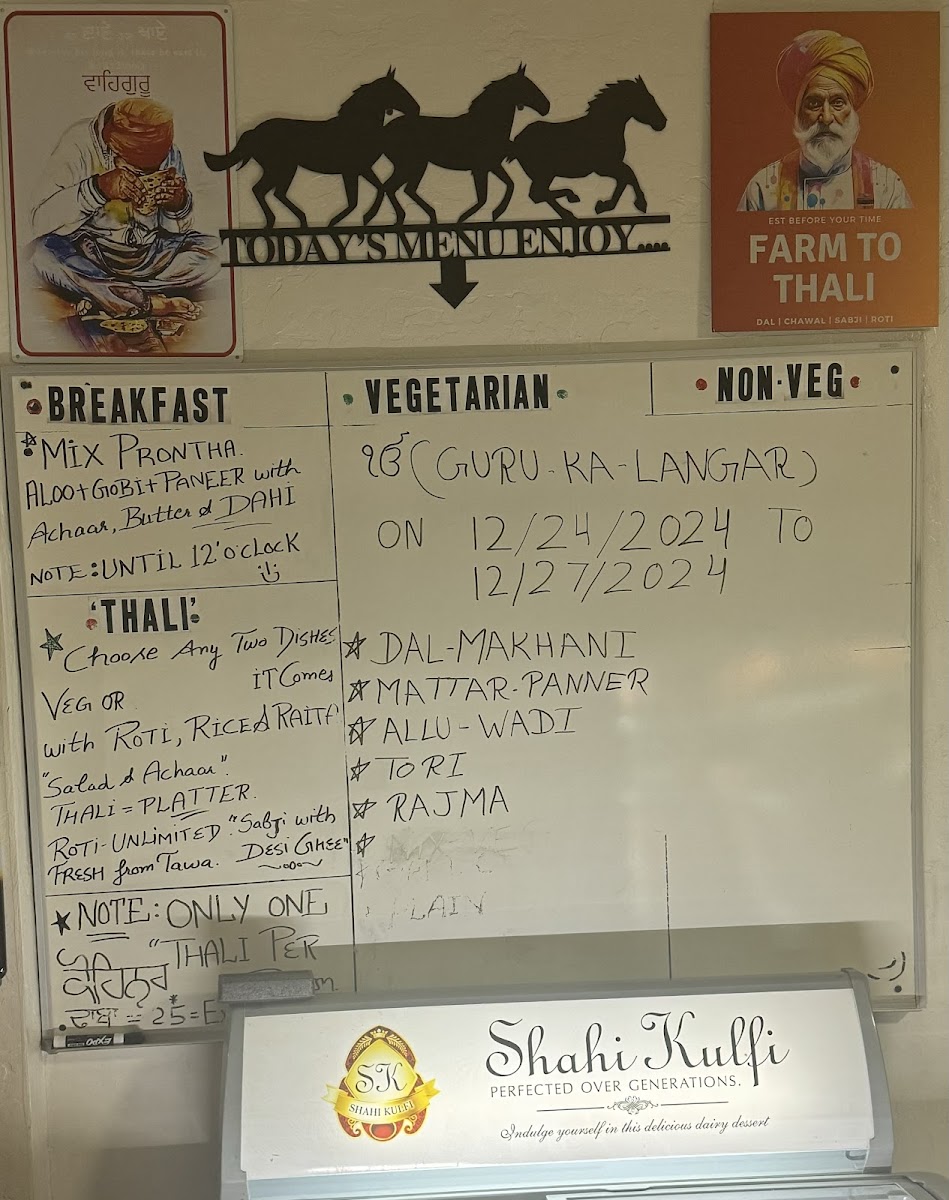 ਵਾਹਿਗੁਰੂ
TODAY'S MENU ENJOY....
EST BEFORE YOUR TIME
FARM TO
THALI
DAL | CHAWAL | SABJI | ROTI
BREAKFAST
MIX PRONTHA.
ALOO+GOBI+PANEER with
Achaar, Butter & DAHI
NOTE: UNTIL 12'O'CLOCK
'THALI'
Choose Any Two Dishes
VEG OR
iT Comes
with ROTI, RICE & RAITA
"Salad & Achaar".
THALI = PLATTER.
ROTI-UNLIMITED "Sabji with
FRESH from Tawa. DESI GHEE"
NOTE: ONLY ONE
"THALI PER
ਕੋਹਿਨੂਰ
ਢਾਬਾ = 25 = E
EXPO
VEGETARIAN
NON·VEG
ੴ (GURU-KA-LANGAR)
ON 12/24/2024 TO
12/27/2024
DAL-MAKHANI
MATTAR-PANNER
ALLU-WADI
TORI
RAJMA
PLAIN
SK
SHAHI KULFI
Shahi Kulfi
PERFECTED OVER GENERATIONS.
Indulge yourself in this delicious dairy dessert